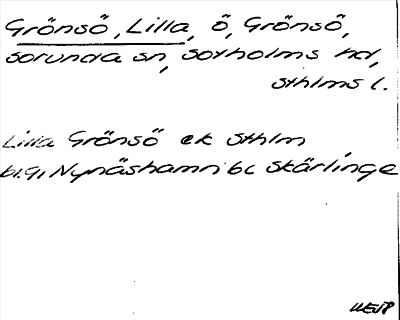 Grönsö, Lilla, ö, Grönsö,
Sorunda sn, Sotholms hd,
Sthlms l.
Lilla Grönsö ek Sthlm
bl. 91 Nynäshamn bc Skärlinge